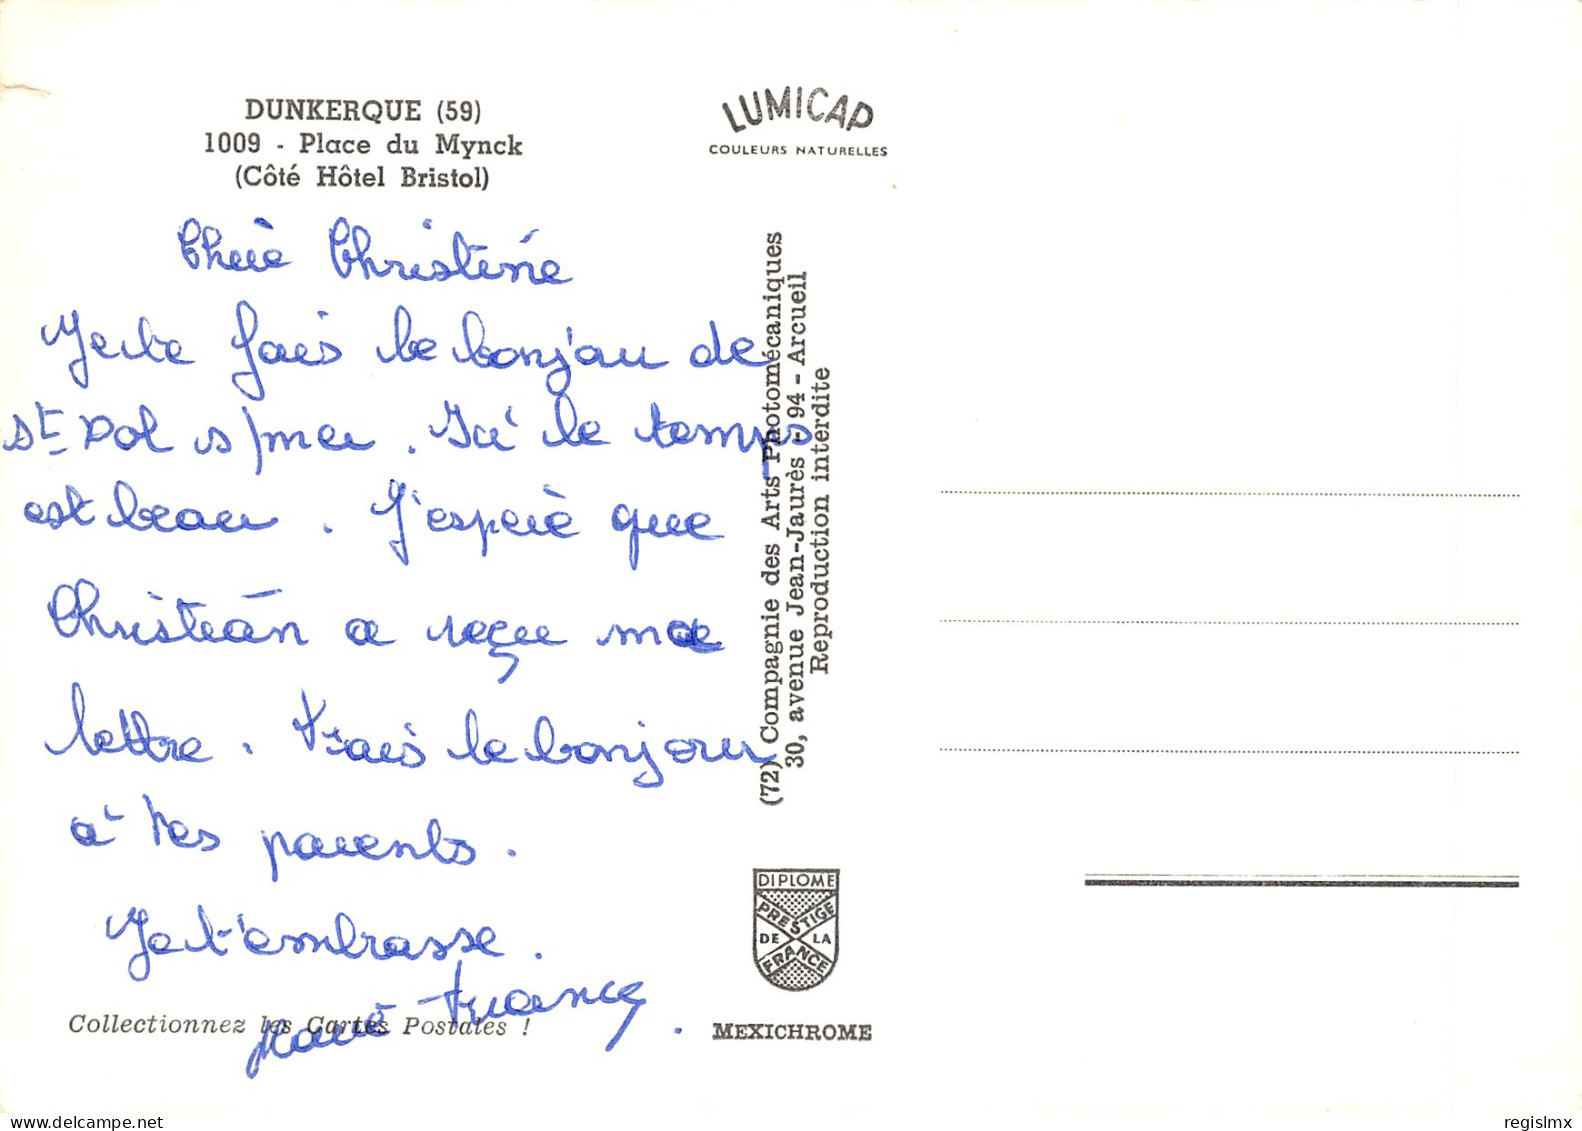 DUNKERQUE (59)
1009 - Place du Mynck
(Côté Hôtel Bristol)
LUMICAP
COULEURS NATURELLES
Chère Christine
Je te fais le bonjour de
St Pol s/mer. Ici le temps
est beau. J'espère que
Christian a reçu ma
lettre. Fais le bonjour
à tes parents.
Je t'embrasse.
Marie France.
(72) Compagnie des Arts Photomécaniques
30, avenue Jean-Jaurès - 94 - Arcueil
Reproduction interdite
DIPLOME
PRESTIGE
DE LA
FRANCE
Collectionnez les Cartes Postales !
MEXICHROME
regislmx